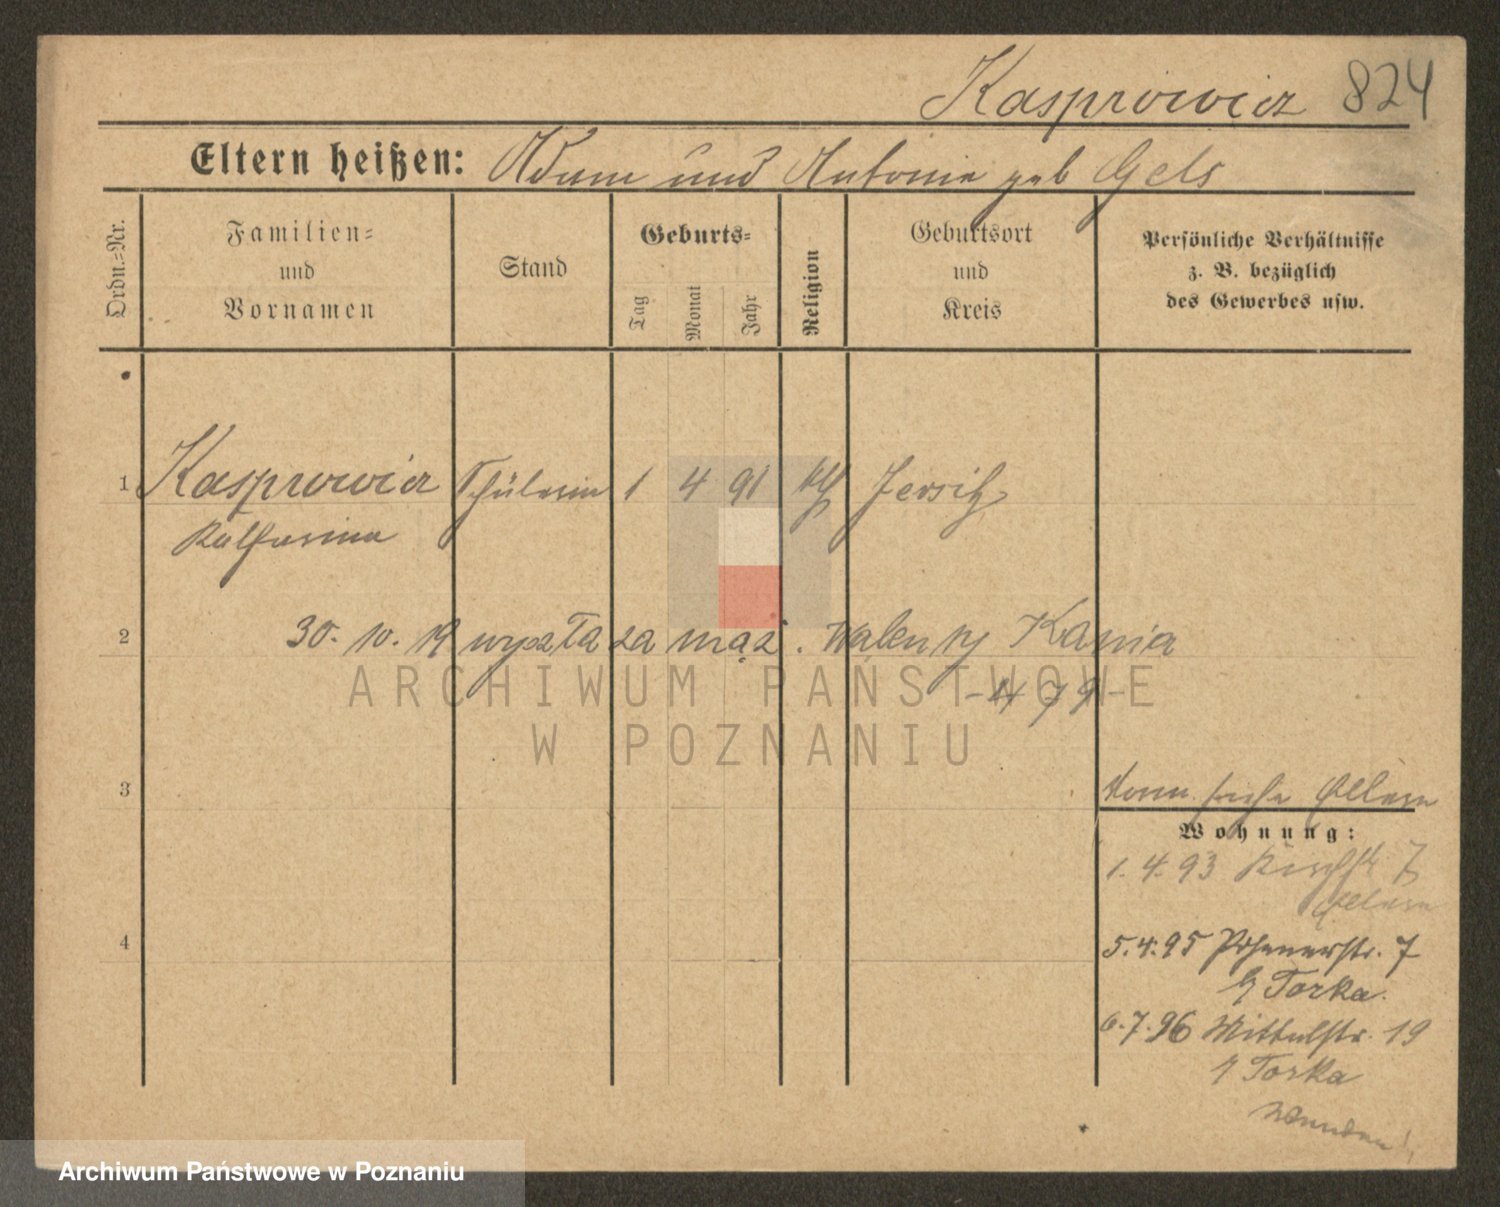 Kasprowicz 824
Eltern heißen: Adam und Antonie geb Gels
Ordn.-Nr.
Familien-
und
Vornamen
Stand
Geburts-
Tag
Monat
Jahr
Religion
Geburtsort
und
Kreis
Persönliche Verhältnisse
z. B. bezüglich
des Gewerbes usw.
1 Kasprowicz Schülerin 1 4 91 kth Jersitz
Katharina
2 30. 10. 19 wyszła za mąż. Walenty Kania
- 479 -
ARCHIWUM PAŃSTWOWE
W POZNANIU
3
siehe Eltern
Wohnung:
1. 4. 93 Kirchstr 7
Eltern
4
5. 4. 95 Posenerstr. 7
b/ Torka.
6. 7. 96 Mittelstr. 19
Torka
Wenden!
Archiwum Państwowe w Poznaniu